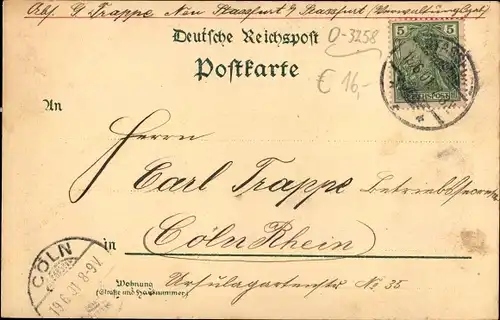 Abs. G. Trappe, Neu Stassfurt b/ Stassfurt, (Verwaltungsgeb)
D-3258
5 5
REICHSPOST
Deutsche Reichspost
Postkarte
€ 16,-
An
Herrn
Carl Trappe Betriebssecr
in Cöln Rhein
Wohnung
(Straße und Hausnummer)
Ursulagartenstr No 35
CÖLN
19.6.01 8-9V